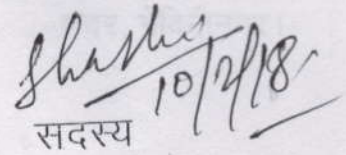 10/2/18
सदस्य